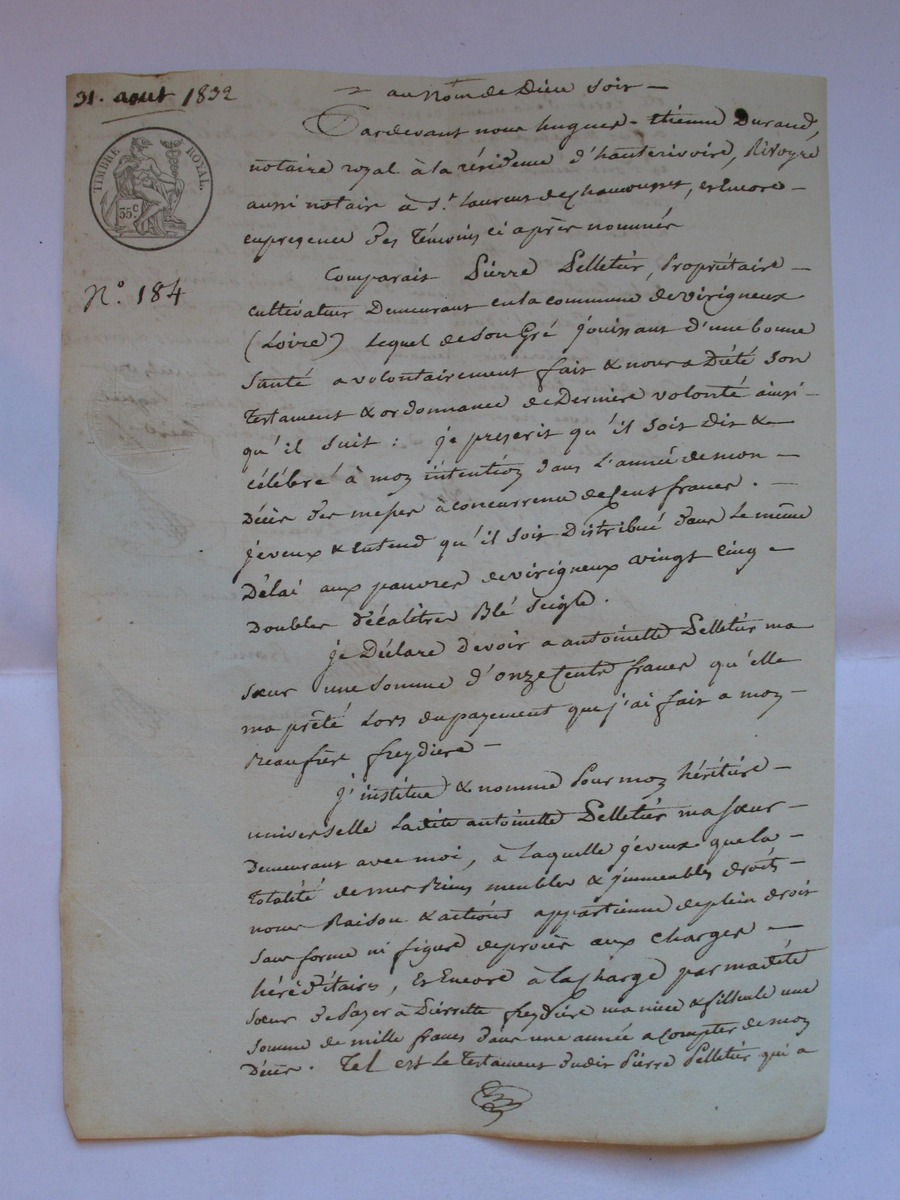 31. aout 1832
au Nom de Dieu soit
TIMBRE ROYAL.
35 C
N.o 184
Pardevant nous hugues-étienne Durand,
notaire royal à la résidence d'hauterivoire, Rivoyre
aussi notaire à St. Laurent de chamousset, et Encore
en presence des témoins ci après nommés
Comparait Pierre Pelletier, Propriétaire
cultivateur Demeurant en la commune de virigneux
(Loire) lequel de son Gré jouissant d'une bonne
Santé a volontairement fait & nous a Dicté Son
testament & ordonnance de Dernière volonté ainsi
qu'il suit : je prescrit qu'il soit Dit &
célébré à mon intention dans l'année de mon
Décès des messes à concurrence de Cent francs.
je veux & entend qu'il soit Distribué dans le même
Délai aux pauvres de virigneux vingt Cinq
Doubles décalitres Blé Seigle.
je Déclare devoir a antoinette Pelletier ma
sœur une somme d'onze Cents francs qu'elle
ma prêté lors du payement que j'ai fait a mon
Beaufrère freydiere
j'institue & nomme Pour mon héritière
universelle ladite antoinette Pelletier ma sœur
Demeurant avec moi, à laquelle je veux que la
totalité de mes Biens meubles & jmmeubles droits
noms Raison & actions appartienne de plein droit
sans forme ni figure de procès aux Charges
héréditaires, et Encore à la charge par madite
Sœur de Payer à Pierrette freydière ma niece & filleule une
somme de mille francs dans une année a compter de mon
Décès. Tel est le testament dudit Pierre Pelletier qui a